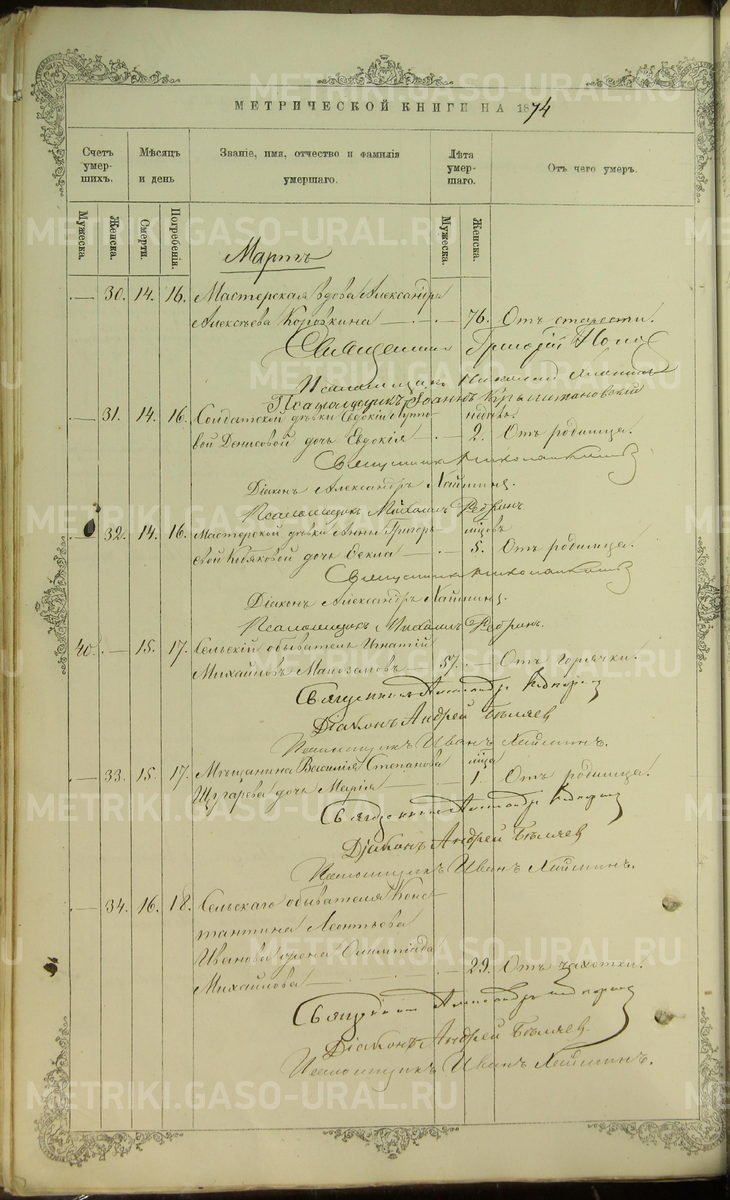 МЕТРИЧЕСКОЙ КНИГИ НА 1874
Счетъ умер- шихъ.
Мѣсяцъ и день
Званіе, имя, отчество и фамилія умершаго.
Лѣта умер- шаго.
Отъ чего умеръ.
Мужеска. Женска. Смерти. Погребенія. Мужеска. Женска.
Мартъ
30. 14. 16. Мастерская вдова Александра
Алексѣева Коровкина 76. Отъ старости.
Священник Григорій Попов
Псаломщикъ
Псаломщикъ Іоаннъ
31. 14. 16. Солдатской дѣвки Евдокіи
вой Денисовой дочь Евдокія 2. недѣль. Отъ родимца.
Священникъ
Діаконъ Александръ Хаймин.
Псаломщикъ Михаилъ Ребринъ
32. 14. 16. Мастерской дѣвки Анны Григорь-
евой дочь Ѳекла 5. мѣсяцовъ Отъ родимца.
Священникъ
Діаконъ Александръ Хаймин.
Псаломщикъ Михаилъ Ребринъ.
40. 15. 17. Сельскій обыватель Игнатій
Михайловъ 57. Отъ горячки.
Священникъ Александръ
Діаконъ Андрей Бѣляев
Псаломщикъ Иванъ Хайминъ.
33. 15. 17. Мѣщанина Василія Степанова
Щугарева дочь Марія 1. Отъ родимца.
Священникъ Александръ
Діаконъ Андрей Бѣляев
Псаломщикъ Иванъ Хайминъ.
34. 16. 18. Сельскаго обывателя Конс-
тантина Леонтьева
Иванова жена Олимпіада
Михайлова 29. Отъ чахотки.
Священникъ Александръ
Діаконъ Андрей Бѣляев
Псаломщикъ Иванъ Хайминъ.
METRIKI.GASO-URAL.RU